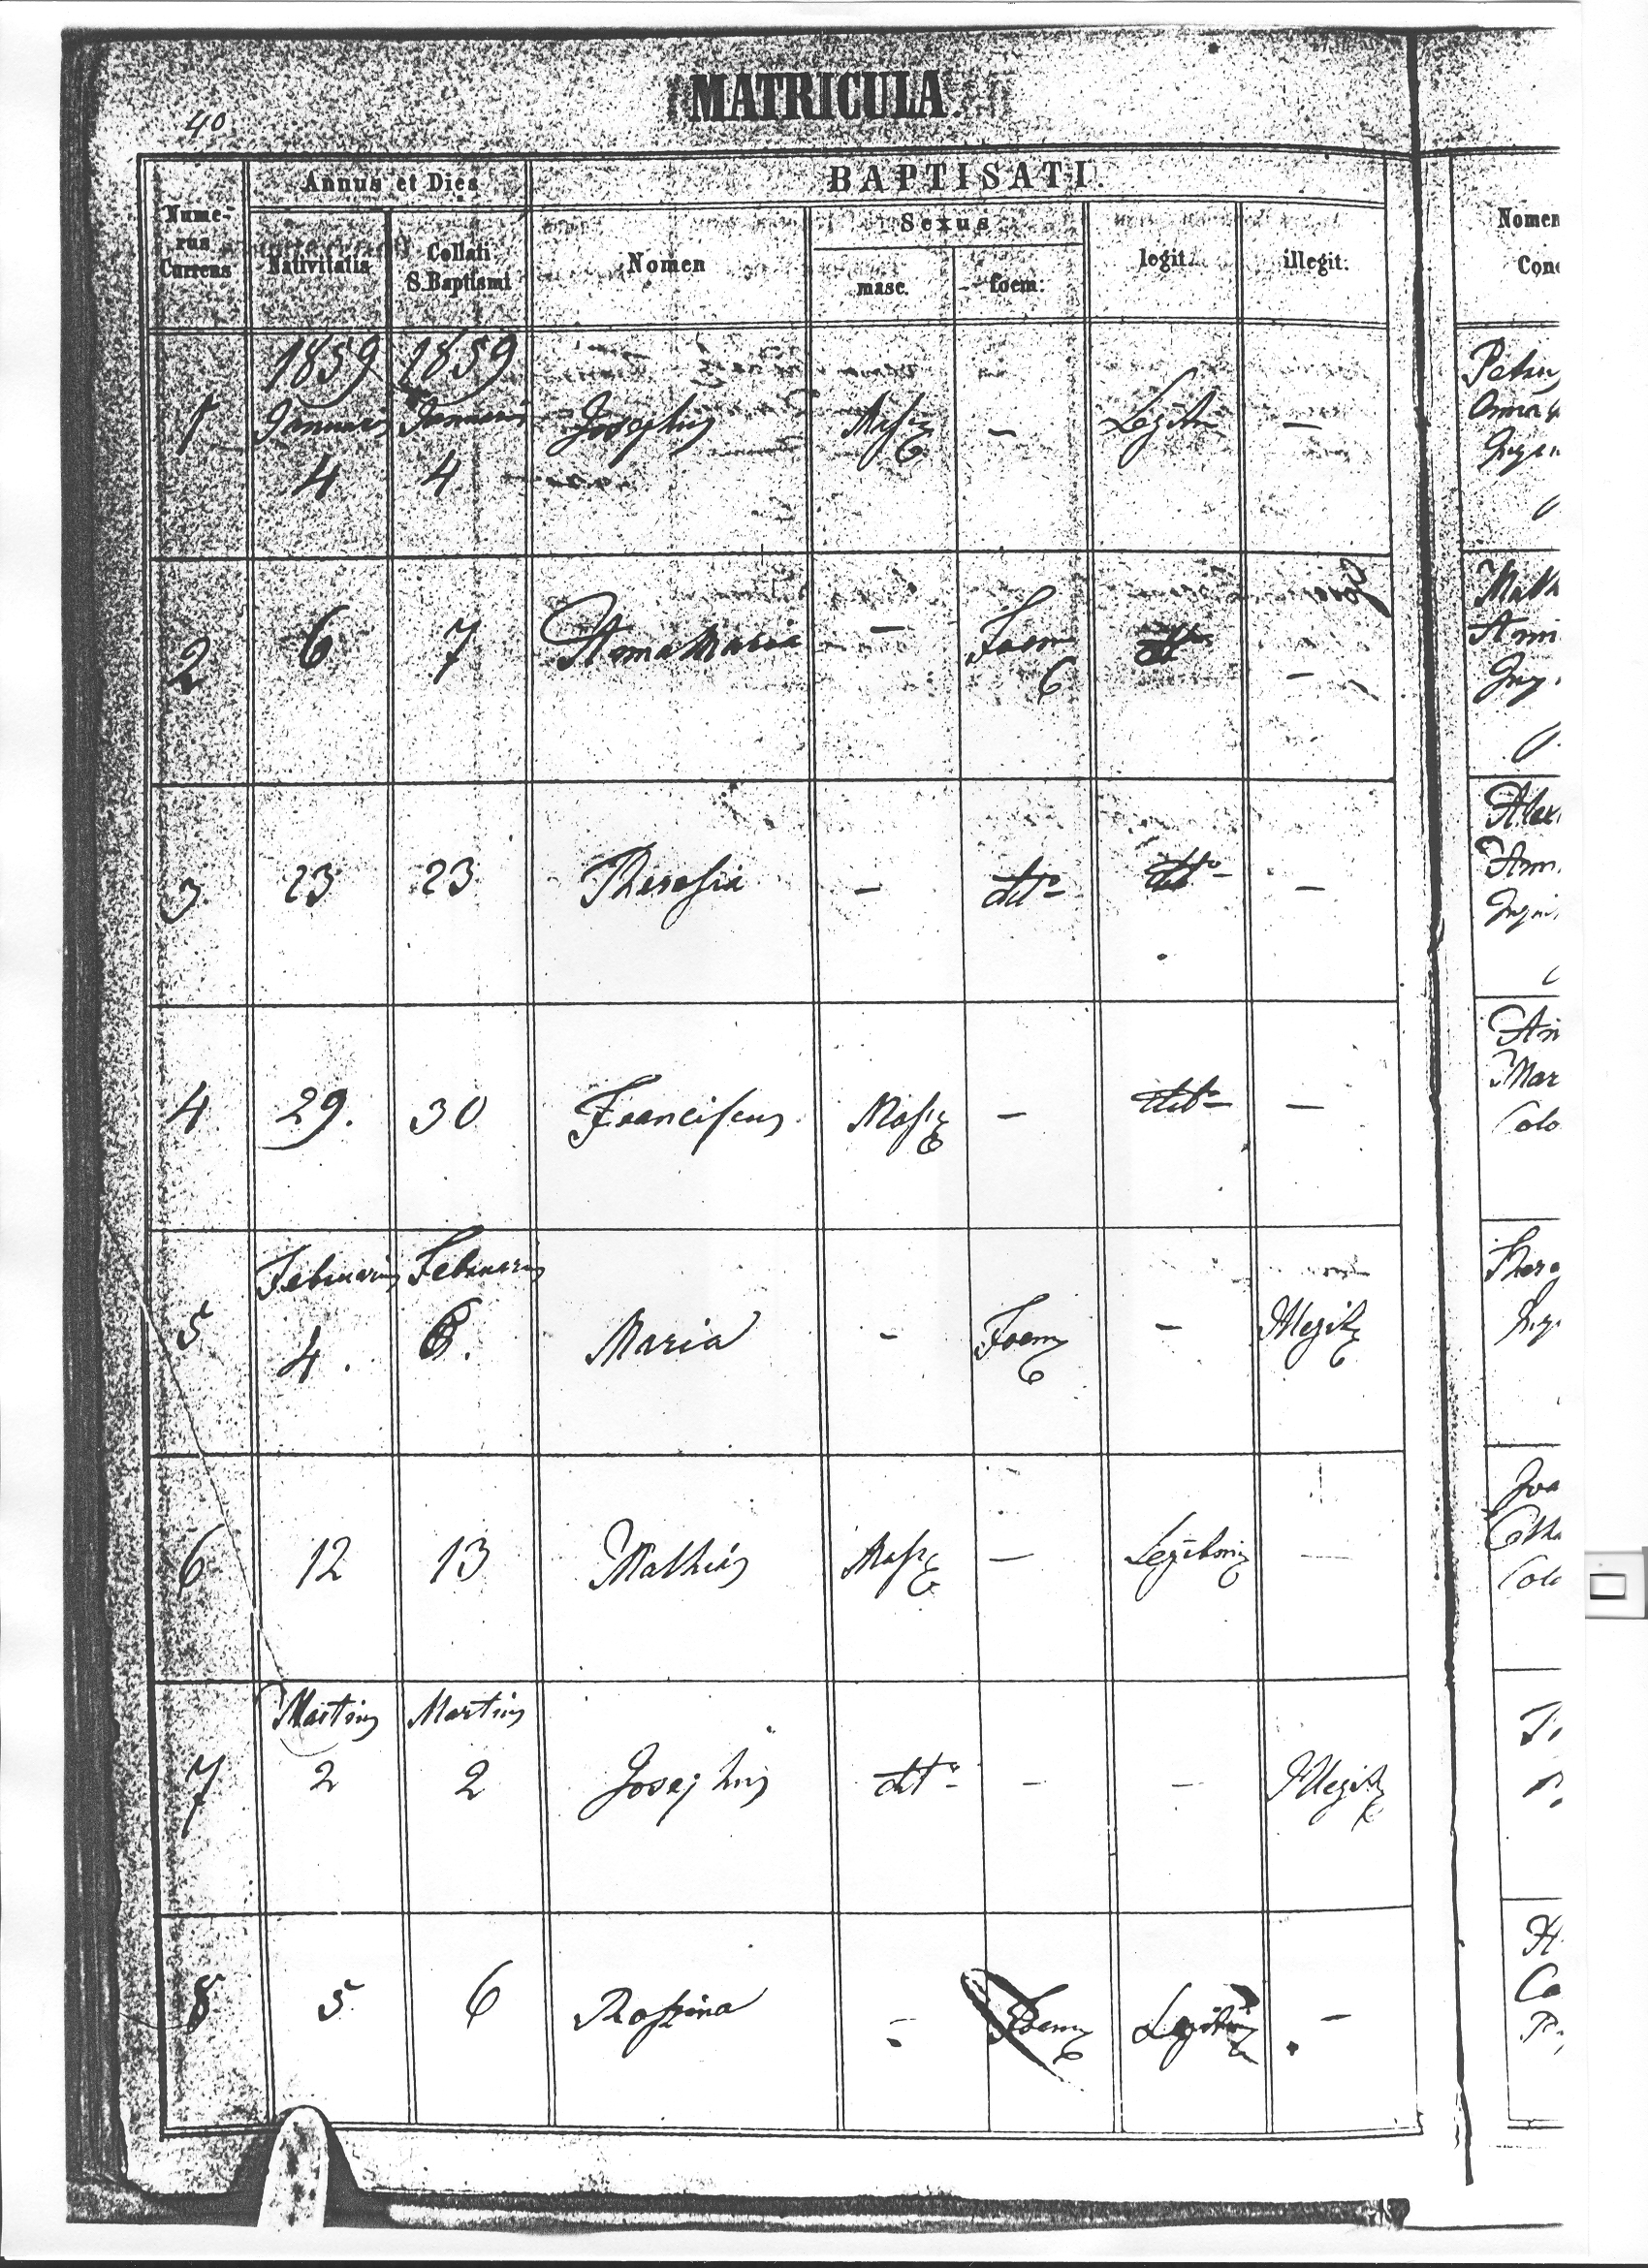 40
MATRICULA.
Numerus Currens
Annus et Dies
Nativitatis
Collati S. Baptismi
BAPTISATI.
Nomen
Sexus
masc.
foem:
legit.
illegit:
Nomen
1859 1859
1 Januarius Januarius Josephus Masc – Legiti –
4 4
2 6 7 Anna Maria – Foem dtto –
3. 23 23 Theresia – dtto dtto –
4 29. 30 Franciscus Masc – dtto –
Februarius Februarius
5 4. 6. Maria – Foem – Illegit
6 12 13 Mathias Masc – Legitim –
Martius Martius
7 2 2 Josephus dtto – – Illegit
8 5 6 Rosina – Foem Legitim –